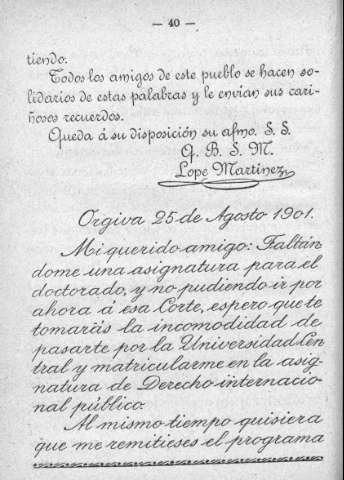 — 40 —
tiendo.
Todos los amigos de este pueblo se hacen so-
lidarios de estas palabras y le envían sus cari-
ñosos recuerdos.
Queda á su disposición su afmo. S. S.
Q. B. S. M.
Lope Martínez
Orgiva 25 de Agosto 1901.
Mi querido amigo: Faltán
dome una asignatura para el
doctorado, y no pudiendo ir por
ahora á esa Corte, espero que te
tomarás la incomodidad de
pasarte por la Universidad Cen
tral y matricularme en la asig-
natura de Derecho internacio-
nal público.
Al mismo tiempo quisiera
que me remitieses el programa